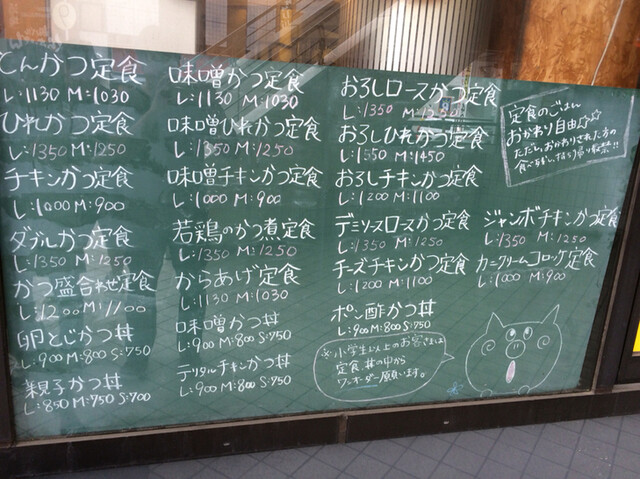 とんかつ定食
L:1130 M:1030
ひれかつ定食
L:1350 M:1250
チキンかつ定食
L:1000 M:900
ダブルかつ定食
L:1350 M:1250
かつ盛合わせ定食
L:1200 M:1100
卵とじかつ丼
L:900 M:800 S:750
親子かつ丼
L:850 M:750 S:700
味噌かつ定食
L:1130 M:1030
味噌ひれかつ定食
L:1350 M:1250
味噌チキンかつ定食
L:1000 M:900
若鶏のかつ煮定食
L:1350 M:1250
からあげ定食
L:1130 M:1030
味噌かつ丼
L:900 M:800 S:750
デリタルチキンかつ丼
L:900 M:800 S:750
おろしロースかつ定食
L:1350 M:1250
おろしひれかつ定食
L:1550 M:1450
おろしチキンかつ定食
L:1200 M:1100
デミソースロースかつ定食
L:1350 M:1250
チーズチキンかつ定食
L:1200 M:1100
ポン酢かつ丼
L:900 M:800 S:750
※小学生以上のお客さまは
定食、丼の中から
ワンオーダー願います。
定食のごはん
おかわり自由☆☆
ただし、おかわりされた方の
食べ残し、持ち帰り厳禁!!
ジャンボチキンかつ定食
L:1350 M:1250
カニクリームコロッケ定食
L:1000 M:900